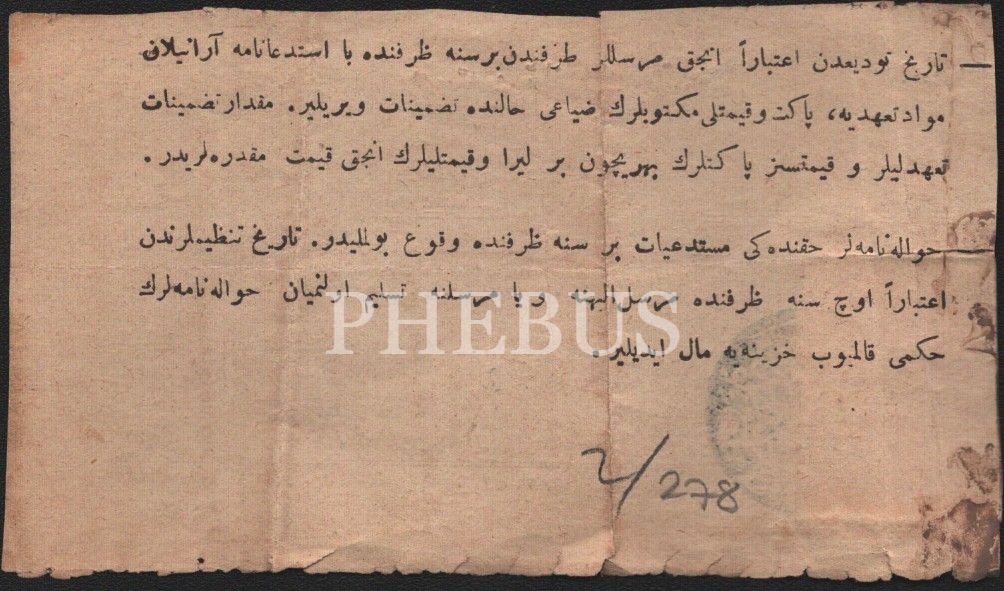 — تاريخ توديعدن اعتباراً انجق مرسللر طرفندن بر سنه ظرفنده با استدعانامه آرانيلان
مواد تعهديه، پاكت و قيمتلى مكتوبلرك ضياعى حالنده تضمينات ويريلير. مقدار تضمينات
تعهدليلر و قيمتسز پاكتلرك بهريچون بر ليرا و قيمتليلرك انجق قيمت مقدره لريدر.
— حواله نامه لر حقنده كى مستدعيات بر سنه ظرفنده وقوع بولمليدر. تاريخ تنظيملرندن
اعتباراً اوچ سنه ظرفنده مرسل اليهنه ويا مرسلنه تسليم اولنميان حواله نامه لرك
حكمى قالميوب خزينه يه مال ايديلير.
PHEBUS
2/278